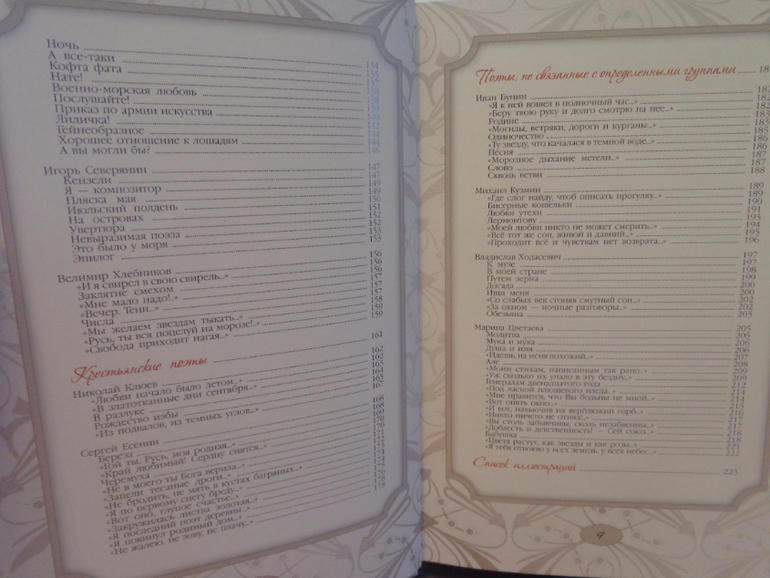 Ночь
А все-таки
Кофта фата 134
Нате!
Военно-морская любовь
Послушайте!
Приказ по армии искусства
Лиличка!
Гейнеобразное
Хорошее отношение к лошадям
А вы могли бы?
Игорь Северянин 147
Кензели 147
Я — композитор 149
Пляска мая 149
Июльский полдень 150
На островах 151
Увертюра 152
Невыразимая поэза 152
Это было у моря 153
Эпилог 153
Велимир Хлебников 156
«И я свирел в свою свирель..» 156
Заклятие смехом 156
«Мне мало надо!..» 157
«Вечер. Тени..» 157
Числа 158
«Мы желаем звездам тыкать..» 158
«Русь, ты вся поцелуй на морозе!..» 159
«Свобода приходит нагая..» 159
Крестьянские поэты 161
Николай Клюев 162
«Любви начало было летом..»
«В златотканные дни сентября..»
В разлуке
Рождество избы
«Из подвалов, из темных углов..»
Сергей Есенин 168
Береза 168
«Гой ты, Русь, моя родная..»
«Край любимый! Сердцу снятся..»
Черемуха
«Не в моего ты Бога верила..»
«Запели тесаные дроги..»
«Не бродить, не мять в кустах багряных..»
«Я по первому снегу бреду..»
«Вот оно, глупое счастье..»
«Закружилась листва золотая..»
«Я последний поэт деревни..»
«Я покинул родимый дом..»
«Не жалею, не зову, не плачу..»
Поэты, не связанные с определенными группами
Иван Бунин 182
«Я к ней вошел в полночный час..» 182
«Беру твою руку и долго смотрю на нее..» 182
Родине 183
«Могилы, ветряки, дороги и курганы..» 183
Одиночество 185
«Ту звезду, что качалася в темной воде..» 186
Песня 186
«Морозное дыхание метели..» 187
Слово 187
Сквозь ветви 188
Михаил Кузмин 189
«Где слог найду, чтоб описать прогулку..» 189
Бисерные кошельки 190
Любви утехи 191
Лермонтову 193
«Моей любви никто не может смерить..» 194
«Всё тот же сон, живой и давний..» 195
«Проходит всё и чувствам нет возврата..» 196
Владислав Ходасевич 197
К музе 197
В моей стране 198
Путем зерна 199
Досада 200
Ищи меня 200
«Со слабых век сгоняя смутный сон..» 202
«За окном — ночные разговоры..» 202
Обезьяна 203
Марина Цветаева 205
Молитва 205
Мука и мука 206
Душа и имя 206
«Идешь, на меня похожий..» 207
Але 208
«Моим стихам, написанным так рано..» 209
«Уж сколько их упало в эту бездну..» 209
Генералам двенадцатого года 212
«Под лаской плюшевого пледа..» 212
«Мне нравится, что Вы больны не мной..» 214
«Вот опять окно..» 214
«И вот, навьючив на верблюжий горб.. 216
«Никто ничего не отнял!.. 216
«Вы столь забывчивы, сколь незабвенны.. 217
«Доблесть и девственность! — Сей союз.. 218
Бабушка 218
«Цвета растут, как звезды и как розы..» 221
«Я тебя отвоюю у всех земель, у всех небес.. 222
Список иллюстраций 223
9